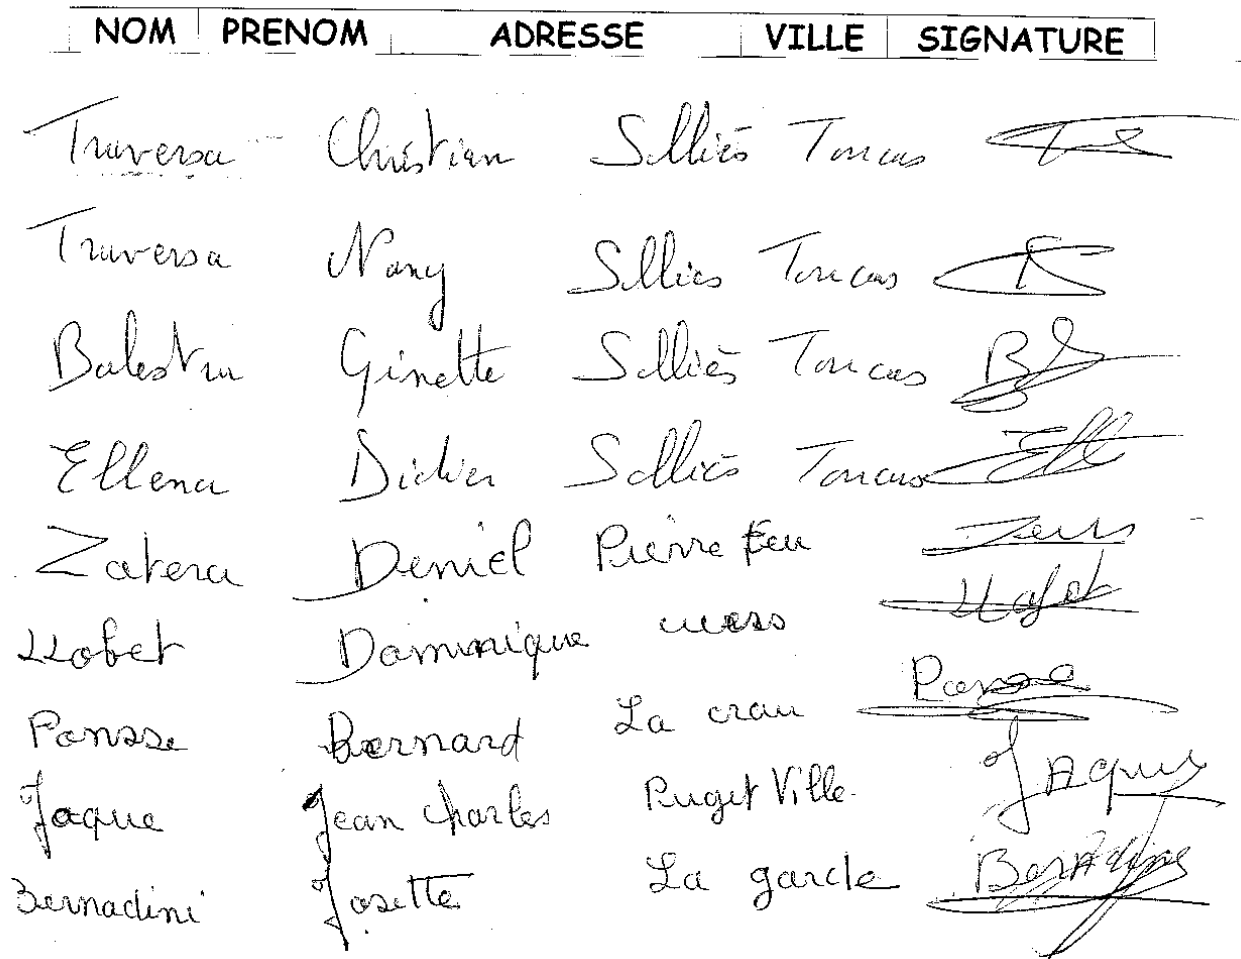 NOM PRENOM ADRESSE VILLE SIGNATURE
Traversa Christian Solliès Toucas
Traversa Nany Sollies Toucas
Balestra Ginette Solliès Toucas BG
Ellena Didier Solliès Toucas Ell
Zatera Deniel Pierre feu
LLobet Dominique cuers LLobet
Ponsse Bernard La crau
Jaque Jean Charles Puget Ville Jaque
Bernadini Josette La garde